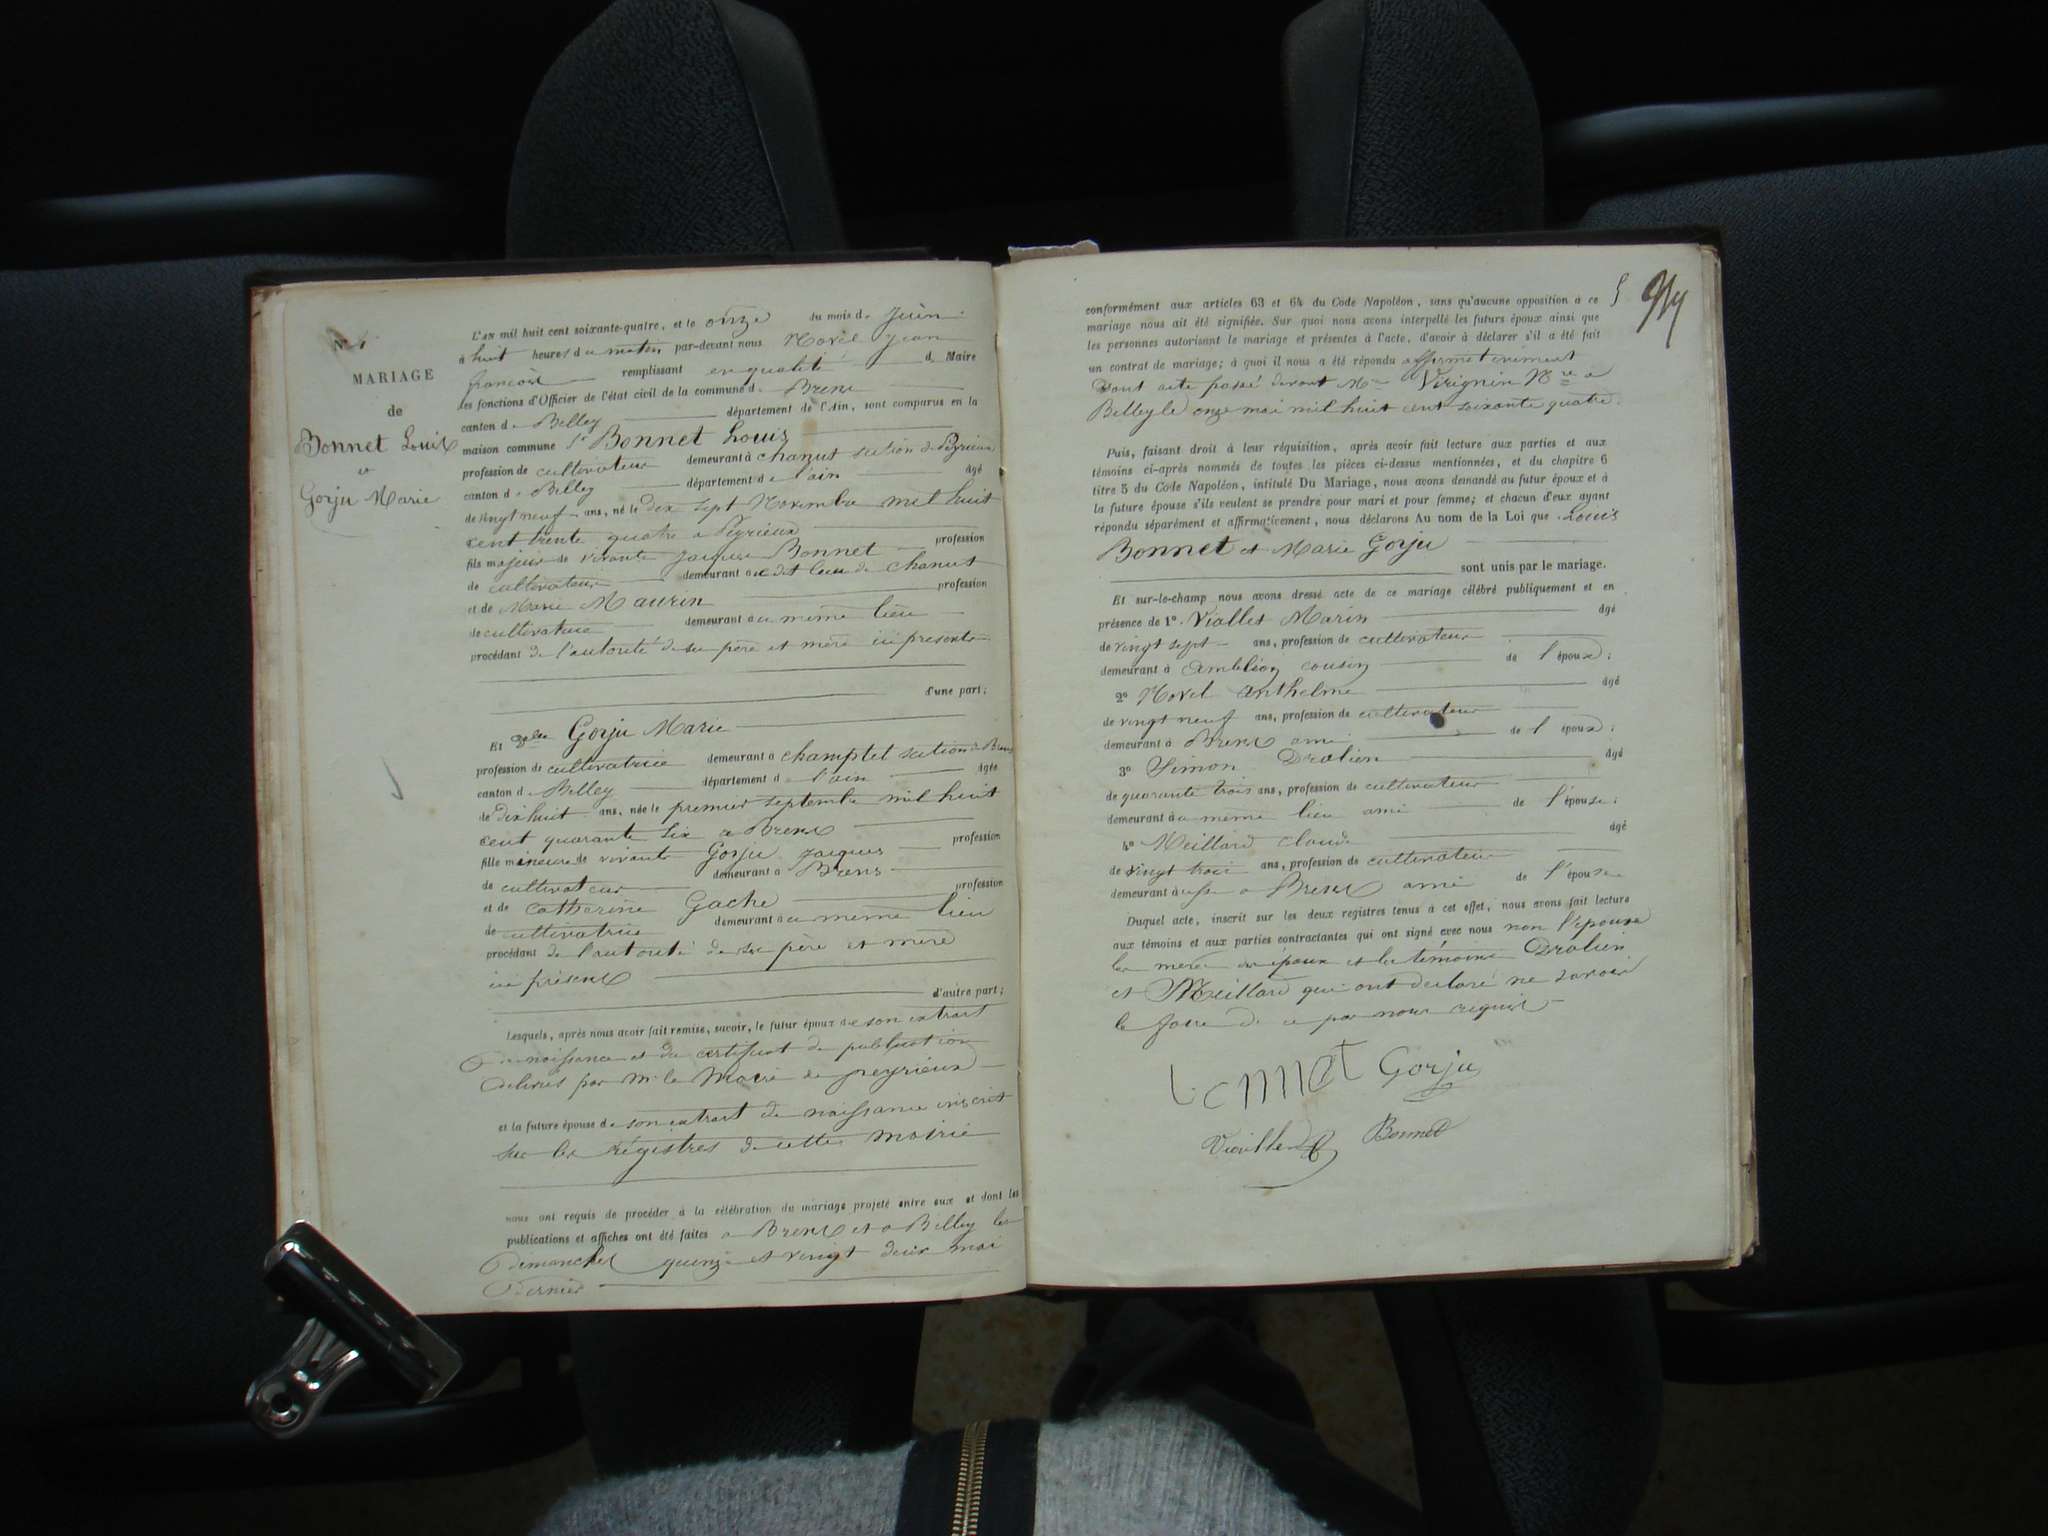 MARIAGE
de
Bonnet Louis
et
Gorju Marie
L'AN mil huit cent soixante-quatre, et le onze du mois de Juin
à huit heures du matin par-devant nous Morel Jean
françois remplissant en qualité de Maire
les fonctions d'Officier de l'état civil de la commune de Brens
canton de Belley département de l'Ain, sont comparus en la
maison commune Sr Bonnet Louis
profession de cultivateur demeurant à chanut section de Peyrieux
canton de Belley département de l'ain âgé
de vingt neuf ans, né le dix sept Novembre mil huit
cent trente quatre a Peyrieux
fils majeur de vivants Jacques Bonnet profession
de cultivateur demeurant au dit lieu de chanut
et de Marie Maurin profession
de cultivatrice demeurant au même lieu
procédant de l'autorité de ses père et mère ici présents
d'une part;
Et Dlle Gorju Marie
profession de cultivatrice demeurant à champtel section de Brens
canton de Belley département de l'ain âgée
de dix huit ans, née le premier septembre mil huit
cent quarante six a Brens
fille mineure de vivants Gorju Jacques profession
de cultivateur demeurant à Brens
et de Catherine Gache profession
de cultivatrice demeurant au même lieu
procédant de l'autorité de ses père et mère
ici présents
d'autre part;
Lesquels, après nous avoir fait remise, savoir, le futur époux de son extrait
de naissance et du certificat de publication
délivrés par Mr le Maire de peyrieux
et la future épouse de son extrait de naissance inscrit
sur les régistres de cette mairie
nous ont requis de procéder à la célébration du mariage projeté entre eux et dont les
publications et affiches ont été faites a Brens et a Belley les
dimanches quinze et vingt deux mai
dernier
5
conformément aux articles 63 et 64 du Code Napoléon, sans qu'aucune opposition à ce
mariage nous ait été signifiée. Sur quoi nous avons interpellé les futurs époux ainsi que
les personnes autorisant le mariage et présentes à l'acte, d'avoir à déclarer s'il a été fait
un contrat de mariage; à quoi il nous a été répondu affirmativement
Dont acte passé devant Me Virignin Nre a
Belley le onze mai mil huit cent soixante quatre.
Puis, faisant droit à leur réquisition, après avoir fait lecture aux parties et aux
témoins ci-après nommés de toutes les pièces ci-dessus mentionnées, et du chapitre 6
titre 5 du Code Napoléon, intitulé Du Mariage, nous avons demandé au futur époux et à
la future épouse s'ils veulent se prendre pour mari et pour femme; et chacun d'eux ayant
répondu séparément et affirmativement, nous déclarons Au nom de la Loi que Louis
Bonnet et Marie Gorju
sont unis par le mariage.
Et sur-le-champ nous avons dressé acte de ce mariage célébré publiquement et en
présence de 1º Viallet Marin âgé
de vingt sept ans, profession de cultivateur
demeurant à Ambléon cousin de l'époux;
2º Morel Anthelme âgé
de vingt neuf ans, profession de cultivateur
demeurant à Brens ami de l'époux;
3º Simon Drolien âgé
de quarante trois ans, profession de cultivateur
demeurant au même lieu ami de l'épouse;
4º Meillard claude âgé
de vingt trois ans, profession de cultivateur
demeurant a Brens ami de l'épouse
Duquel acte, inscrit sur les deux registres tenus à cet effet, nous avons fait lecture
aux témoins et aux parties contractantes qui ont signé avec nous non l'épouse
les mères des époux et les témoins Drolien
et Meillard qui ont déclaré ne savoir
le faire de ce par nous requis
bonnet Gorju
Bonnet